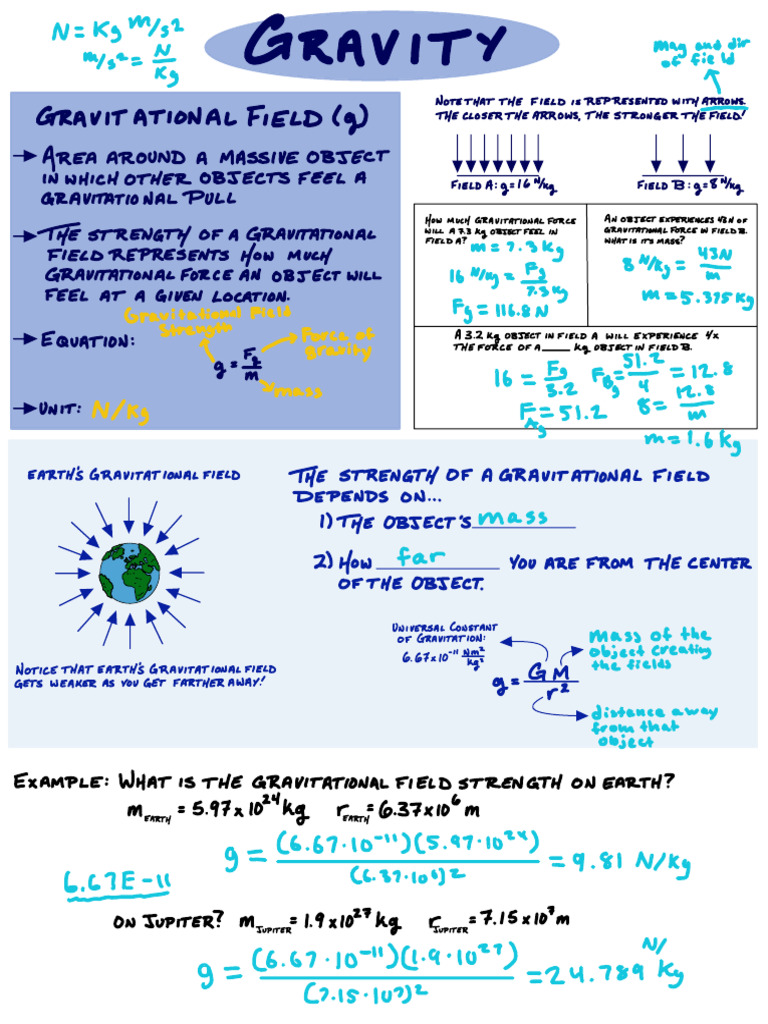 N = Kg m/s²
m/s² = N/Kg
GRAVITY
Mag and dir
of field
GRAVITATIONAL FIELD (g)
→ AREA AROUND A MASSIVE OBJECT
IN WHICH OTHER OBJECTS FEEL A
GRAVITATIONAL PULL
→ THE STRENGTH OF A GRAVITATIONAL
FIELD REPRESENTS HOW MUCH
GRAVITATIONAL FORCE AN OBJECT WILL
FEEL AT A GIVEN LOCATION.
Gravitational Field
Strength
→ EQUATION:
g = Fg/m
Force of
gravity
mass
→ UNIT: N/Kg
NOTE THAT THE FIELD IS REPRESENTED WITH ARROWS.
THE CLOSER THE ARROWS, THE STRONGER THE FIELD!
FIELD A: g = 16 N/kg
FIELD B: g = 8 N/kg
HOW MUCH GRAVITATIONAL FORCE
WILL A 7.3 kg OBJECT FEEL IN
FIELD A?
m = 7.3 Kg
16 N/kg = Fg/7.3 Kg
Fg = 116.8 N
AN OBJECT EXPERIENCES 43N OF
GRAVITATIONAL FORCE IN FIELD B.
WHAT IS IT'S MASS?
8 N/kg = 43N/m
m = 5.375 kg
A 3.2 kg OBJECT IN FIELD A WILL EXPERIENCE 4x
THE FORCE OF A ____ kg OBJECT IN FIELD B.
16 = Fg/3.2
FAg = 51.2
FBg = 51.2/4 = 12.8
8 = 12.8/m
m = 1.6 Kg
EARTH'S GRAVITATIONAL FIELD
NOTICE THAT EARTH'S GRAVITATIONAL FIELD
GETS WEAKER AS YOU GET FARTHER AWAY!
THE STRENGTH OF A GRAVITATIONAL FIELD
DEPENDS ON...
1) THE OBJECT'S mass
2) HOW far YOU ARE FROM THE CENTER
OF THE OBJECT.
UNIVERSAL CONSTANT
OF GRAVITATION:
6.67x10⁻¹¹ Nm²/kg²
g = GM/r²
Mass of the
object creating
the fields
distance away
from that
object
EXAMPLE: WHAT IS THE GRAVITATIONAL FIELD STRENGTH ON EARTH?
mEARTH = 5.97x10²⁴ kg rEARTH = 6.37x10⁶ m
g = (6.67·10⁻¹¹)(5.97·10²⁴)/(6.37·10⁶)² = 9.81 N/Kg
6.67E-11
ON JUPITER? mJUPITER = 1.9x10²⁷ kg rJUPITER = 7.15x10⁷ m
g = (6.67·10⁻¹¹)(1.9·10²⁷)/(7.15·10⁷)² = 24.789 N/Kg